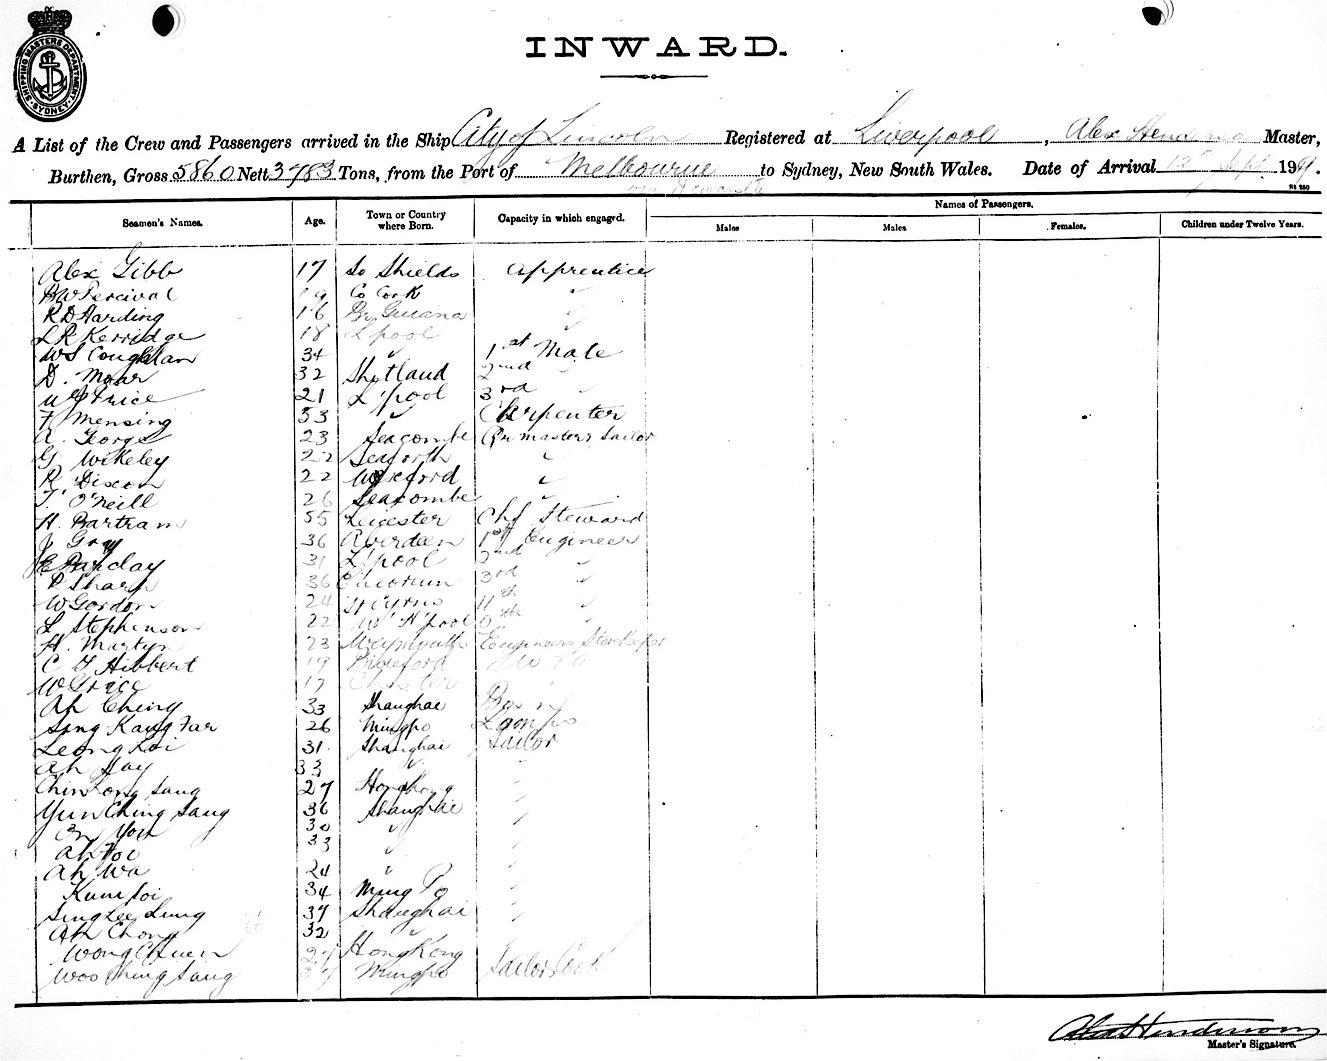 SHIPPING MASTERS DEPARTMENT
SYDNEY
INWARD.
A List of the Crew and Passengers arrived in the Ship City of Lincoln Registered at Liverpool, Alex Henderson Master,
Burthen, Gross 5860 Nett 3783 Tons, from the Port of Melbourne to Sydney, New South Wales. Date of Arrival 12 Sept. 19
via Newcastle
Seamen's Names. Age. Town or Country where Born. Capacity in which engaged. Names of Passengers.
Males Males. Females. Children under Twelve Years.
Alex Gibb 17 So Shields Apprentice
BW Percival 19 Co Cork "
RD Harding 16 Br Guiana "
LR Kerridge 18 L'pool "
WS Coughlan 34 " 1st Mate
D. Moar 32 Shetland 2nd "
Price 21 L'pool 3rd "
F Mensing 53 " Carpenter
A. George 23 Seacombe Qr masters Sailor
G Wikeley 22 Seaforth "
R Dixon 22 Wexford "
T. O'Neill 26 Seacombe "
H. Bartram 55 Leicester Chf Steward
J Gray 36 Aberdeen 1st Engineer
E Barclay 31 L'pool 2nd "
P Sharp 36 3rd "
W Gordon 24 St Cyrus 4th "
L Stephenson 22 W H'pool 5th "
H. Martyn 23 Weymouth Engineers Storekeeper
C T Hibbert 19
W Grace 17 Chester "
Ah Ching 33 Shanghai Bosn
Sing Kang Far 26 Mingpo Lamps
Leong Loi 31 Shanghai Sailor
Ah Hay 33 " "
Chin Fong Sang 27 HongKong "
Yun Ching Sang 36 Shanghai "
You 30 " "
Ah Foi 33 " "
Ah Wa 24 " "
Kum Soi 34 Ming Po "
Sing Lee Sung 37 Shanghai "
Ah Chong 32 " "
Wong Chuen 27 HongKong "
Woo Ching Sang 37 Mingpo Sailors Cook
Alex Henderson
Master's Signature.